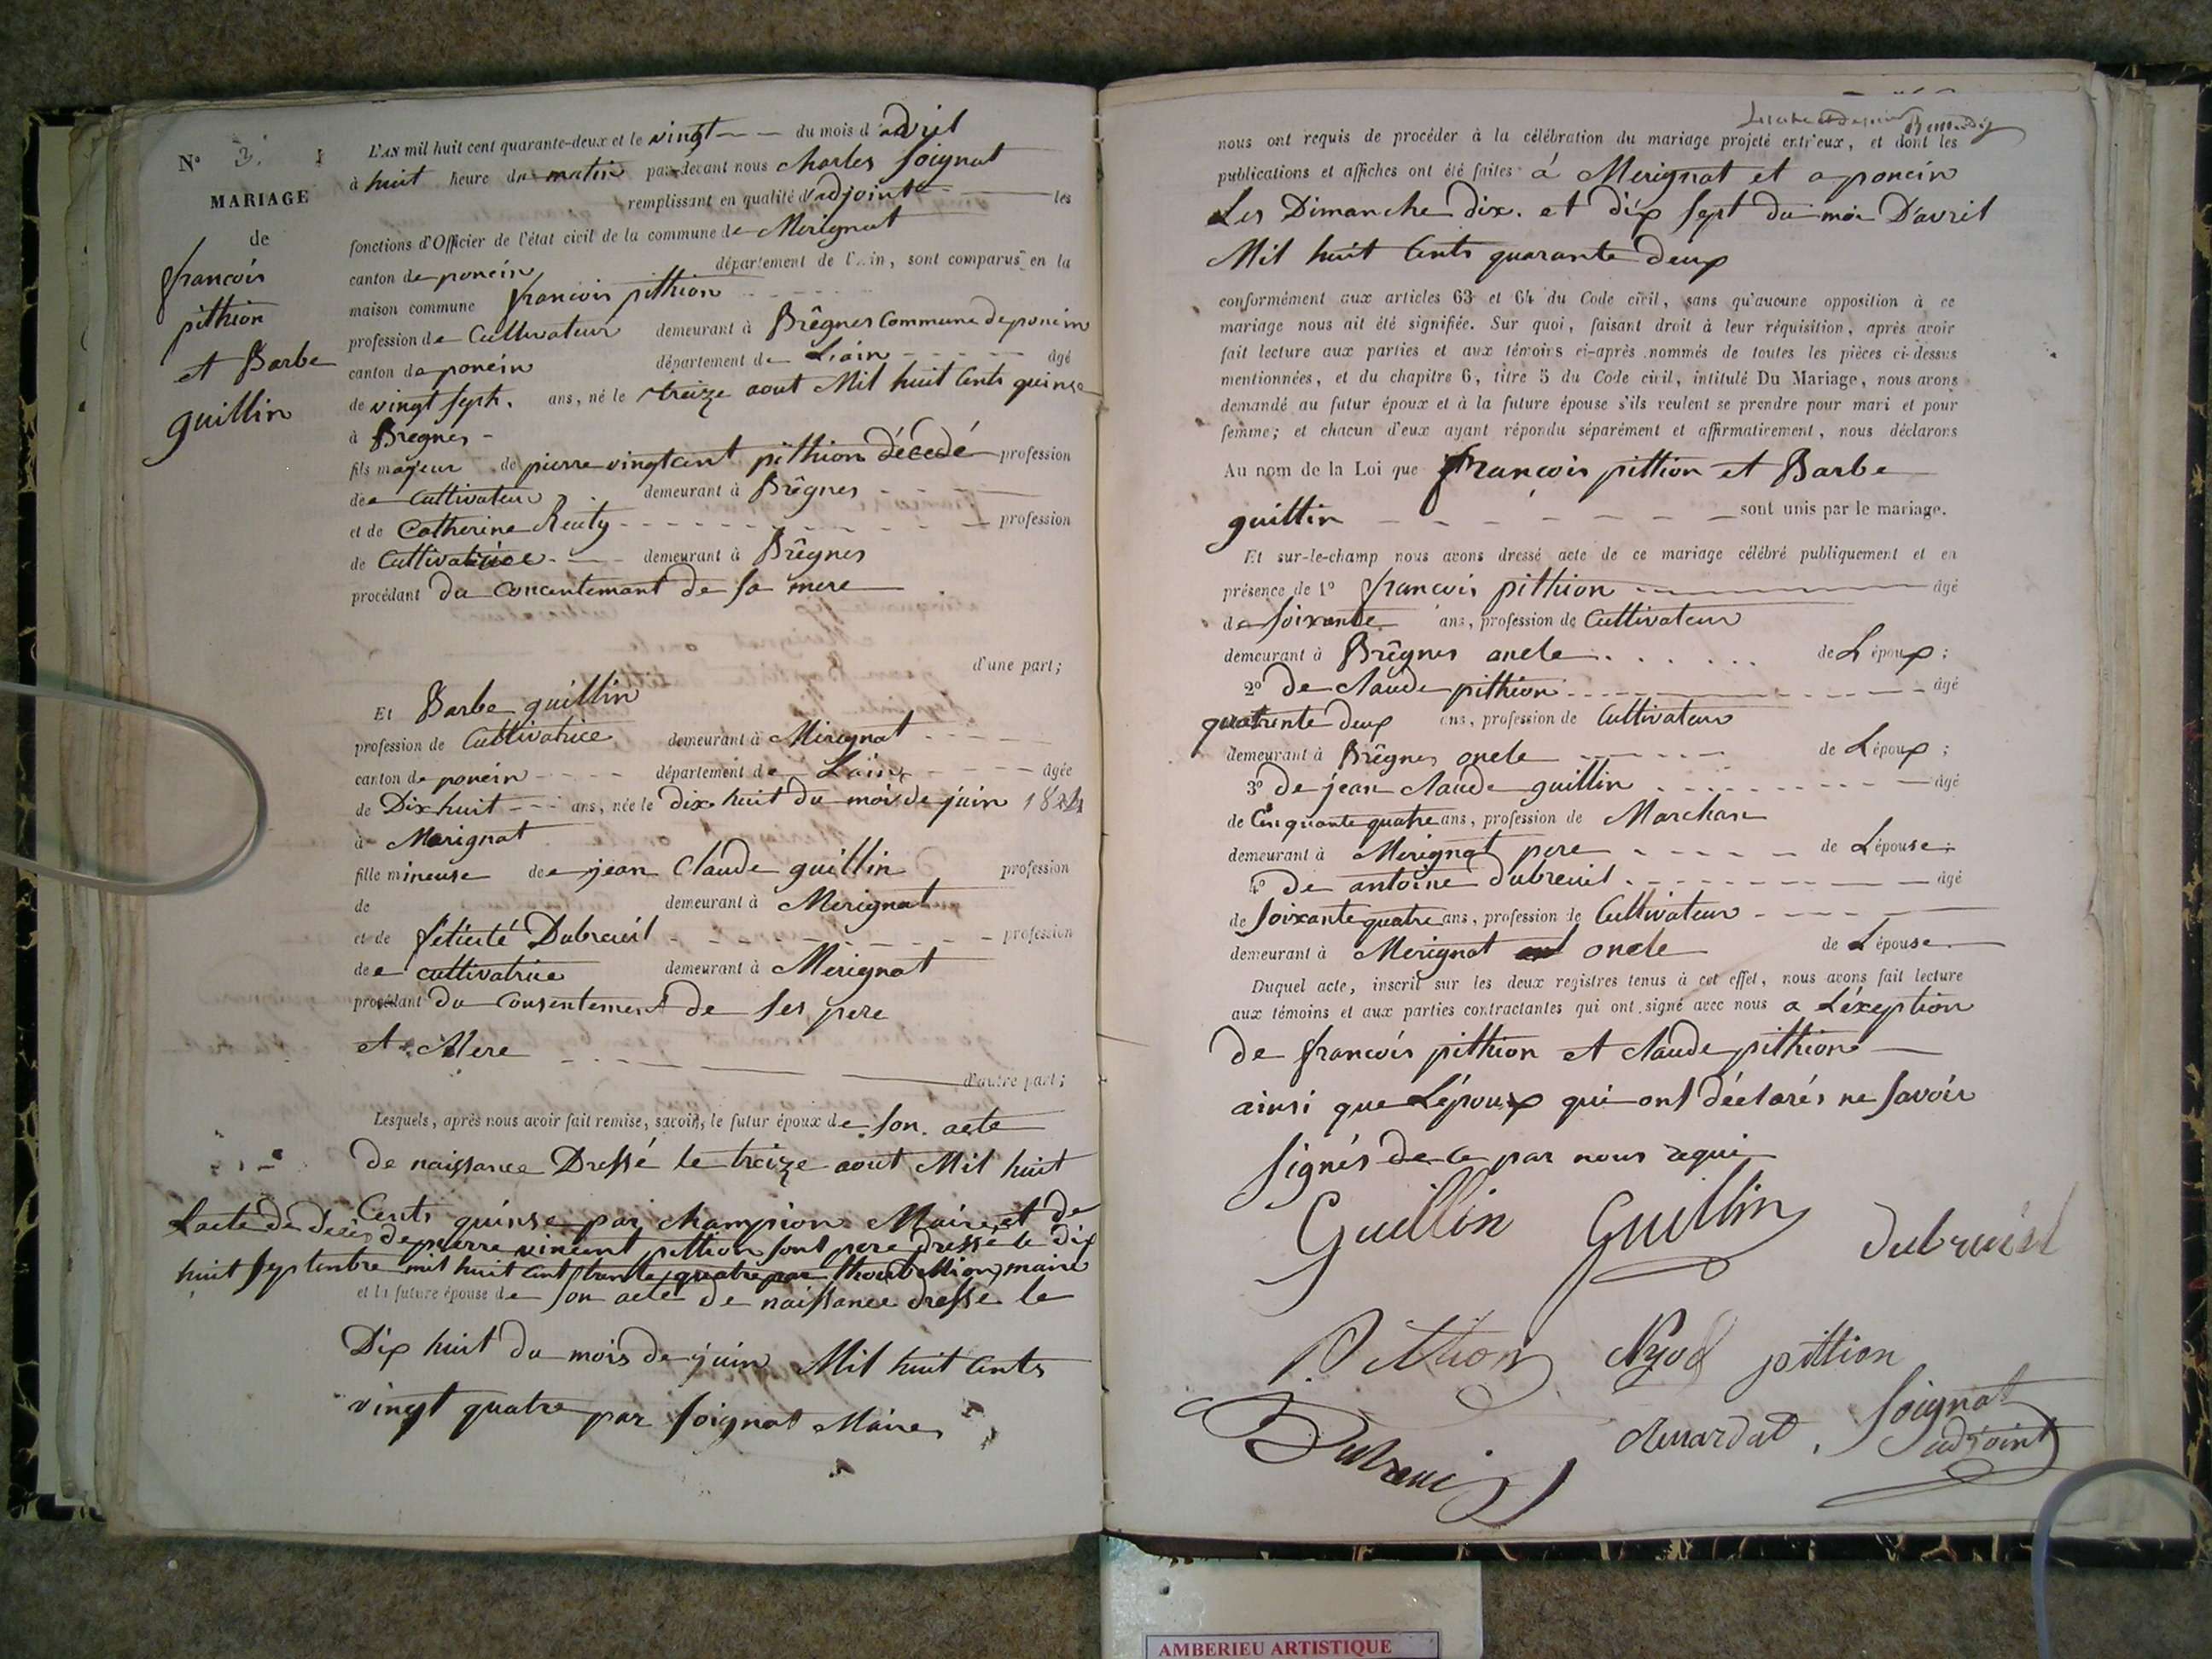 N° 3.
MARIAGE
de
françois
pithion
et Barbe
guillin
L'AN mil huit cent quarante-deux et le vingt du mois d'avril
à huit heure du matin par-devant nous charles Soignat
remplissant en qualité d'adjoint les
fonctions d'Officier de l'état civil de la commune de Merignat
canton de poncin département de l'Ain, sont comparus en la
maison commune françois pithion
profession de Cultivateur demeurant à Brêgnes Commune de poncin
canton de poncin département de Lain âgé
de vingt sept. ans, né le treize aout Mil huit Cents quinse
à Bregnes
fils majeur de pierre vingtcint pithion décedé profession
de Cultivateur demeurant à Brêgnes
et de Catherine Reuty profession
de Cultivatrice demeurant à Brêgnes
procédant du concentemant de sa mere
d'une part;
Et Barbe guillin
profession de Cultivatrice demeurant à Merignat
canton de poncin département de Lain âgée
de Dix huit ans, née le dix huit du mois de juin 1824
à Marignat
fille mineuse de jean Claude guillin profession
de demeurant à Merignat
et de felicité Dubreuil profession
de cultivatrice demeurant à Merignat
procédant du Consentement de ses pere
et Mere
d'autre part;
Lesquels, après nous avoir fait remise, savoir, le futur époux de son acte
de naissance Dressé le treize aout Mil huit
Cents quinse par champion Maire et de
Lacte de décès de pierre vincent pittion sont pere dressé le dix
huit Septembre mil huit cent trente quatre par maire
et la future épouse de son acte de naissance dressé le
Dix huit du mois de juin Mil huit Cents
vingt quatre par Soignat Maire
nous ont requis de procéder à la célébration du mariage projeté entr'eux, et dont les
publications et affiches ont été faites à Merignat et a poncin
Les Dimanche dix. et dix sept du moi D'avril
Mil huit Cents quarante deux
conformément aux articles 63 et 64 du Code civil, sans qu'aucune opposition à ce
mariage nous ait été signifiée. Sur quoi, faisant droit à leur réquisition, après avoir
fait lecture aux parties et aux témoins ci-après nommés de toutes les pièces ci-dessus
mentionnées, et du chapitre 6, titre 5 du Code civil, intitulé Du Mariage, nous avons
demandé au futur époux et à la future épouse s'ils veulent se prendre pour mari et pour
femme; et chacun d'eux ayant répondu séparément et affirmativement, nous déclarons
Au nom de la Loi que françois pittion et Barbe
guillin sont unis par le mariage.
Et sur-le-champ nous avons dressé acte de ce mariage célébré publiquement et en
présence de 1° françois pithion âgé
de soixante ans, profession de Cultivateur
demeurant à Brêgnes oncle de L'époux;
2° de claude pithion âgé
quatrente deux ans, profession de Cultivateur
demeurant à Brêgnes oncle de Lépoux;
3° de jean claude guillin âgé
de Cinquante quatre ans, profession de Marchan
demeurant à Merignat pere de Lépouse;
4° de antoine dubreuil âgé
de soixante quatre ans, profession de Cultivateur
demeurant à Merignat oncle de Lépouse
Duquel acte, inscrit sur les deux registres tenus à cet effet, nous avons fait lecture
aux témoins et aux parties contractantes qui ont signé avec nous a Léxeption
de françois pithion et claude pithion
ainsi que Lépoux qui ont déclarés ne savoir
signés de ce par nous requi
Guillin Guillin dubreuil
Pithion Nyod pittion
Dubreuil Soignat
adjoint
AMBERIEU ARTISTIQUE